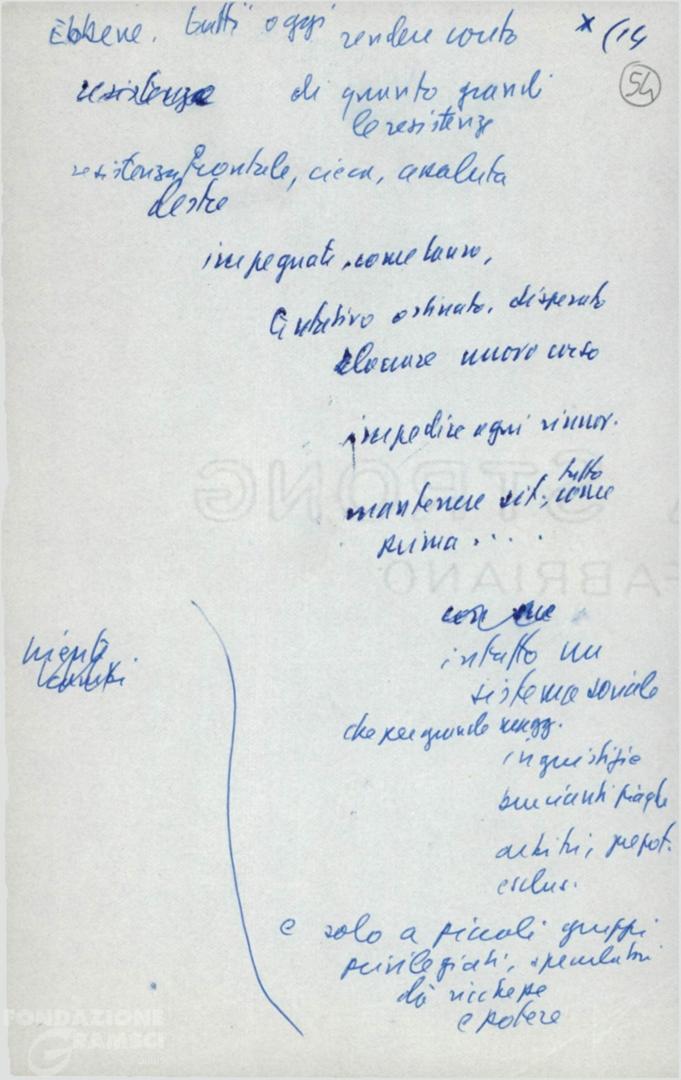 Ebbene. tutti oggi rendere conto * (14
54
resistenze di quanto grandi
le resistenze
resistenza frontale, cieca, assoluta
destre
impegnate, come sanno,
tentativo ostinato, disperato
bloccare nuovo corso
impedire ogni rinnov.
mantenere sit., tutto come
prima ....
STRONG
FABRIANO
con
intatto un
niente
cambi
sistema sociale
che per grande magg.
ingiustizie
brucianti piaghe
arbitri, prepot.
esclus.
e solo a piccoli gruppi
privilegiati, speculatori
dà ricchezze
e potere
FONDAZIONE
GRAMSCI